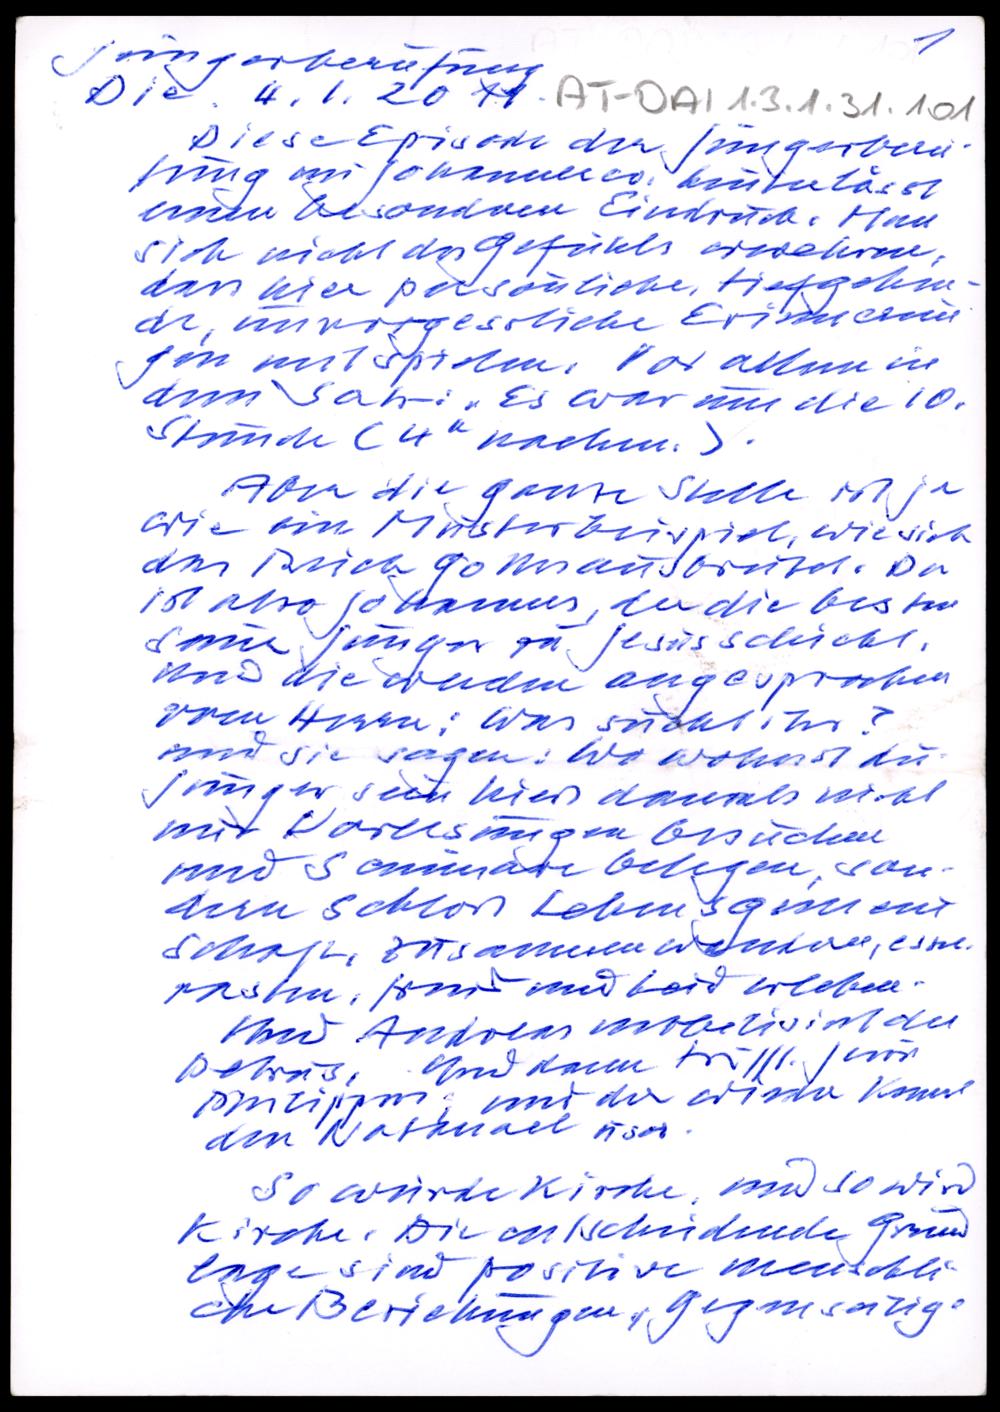 1
Jüngerberufung
Die. 4. 1. 2011. AT-DAI 1.3.1.31.1.01
Diese Episode der Jüngerberu-
fung im Johannesev. hinterlässt
einen besonderen Eindruck. Man
sich nicht des Gefühls erwehren,
dass hier persönliche, tiefgehen-
de, unvergessliche Erinnerun
gen mitspielen. Vor allem in
dem Satz: „Es war um die 10.
Stunde (4h nachm.).
Aber die ganze Stelle ist ja
wie ein Musterbeispiel, wie sich
das Reich Gottes ausbreitet. Da
ist also Johannes, der die besten
seiner Jünger zu Jesus schickt.
Und die werden angesprochen
vom Herrn: Was sucht ihr?
und sie sagen: Wo wohnst du.
Jünger sein hiess damals nicht
nur Vorlesungen besuchen
und Seminare belegen, son-
dern schloss Lebensgemein
schaft, zusammen wandern, essen.
rasten, Freud und Leid erleben.
Und Andreas mobilisiert den
Petrus, und dann trifft Jesus
Philippus, und der wieder kennt
den Nathanael usw.
So wurde Kirche, und so wird
Kirche. Die entscheidende Grund
lage sind positive menschli-
che Beziehungen, gegenseitig-